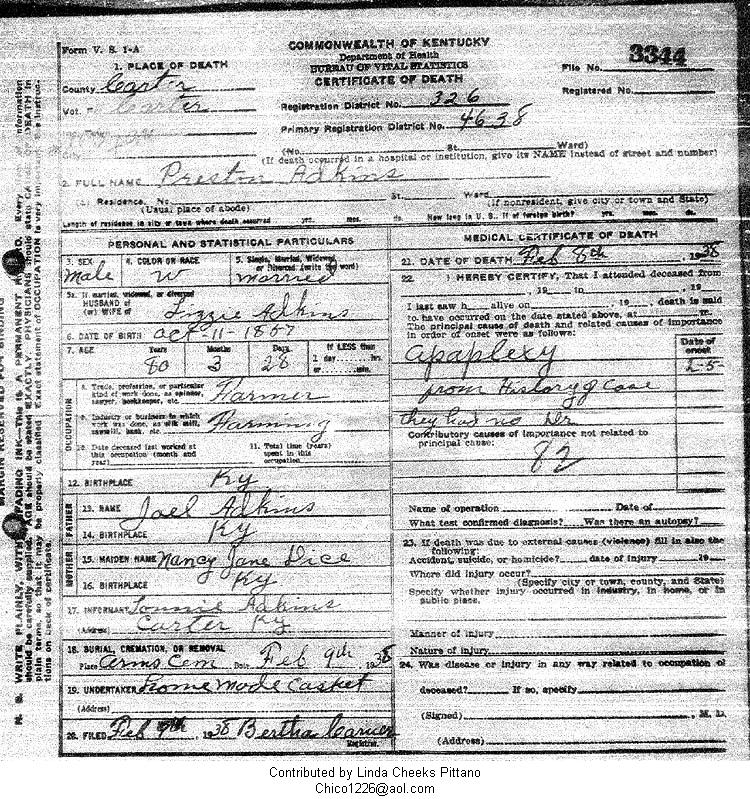 Form V. S. 1-A
COMMONWEALTH OF KENTUCKY
Department of Health
BUREAU OF VITAL STATISTICS
CERTIFICATE OF DEATH
File No. 3344
Registered No.
1. PLACE OF DEATH
County Carter
Vot. P Carter
Registration District No. 326
Primary Registration District No. 4638
City
(No. St. Ward)
(If death occurred in a hospital or institution, give its NAME instead of street and number)
2. FULL NAME Preston Adkins
(a) Residence. No. St. Ward
(Usual place of abode) (If nonresident, give city or town and State)
Length of residence in city or town where death occurred yrs. mos. ds. How long in U. S. if of foreign birth? yrs. mos. ds.
PERSONAL AND STATISTICAL PARTICULARS
3. SEX 4. COLOR OR RACE 5. Single, Married, Widowed, or Divorced (write the word)
Male W Married
5a. If married, widowed, or divorced
HUSBAND of
(or) WIFE of Lizzie Adkins
6. DATE OF BIRTH Oct-11-1857
7. AGE Years Months Days If LESS than
1 day hrs.
or min.
80 3 28
OCCUPATION
8. Trade, profession, or particular
kind of work done, as spinner,
sawyer, bookkeeper, etc. Farmer
9. Industry or business in which
work was done, as silk mill,
sawmill, bank, etc. Farming
10. Date deceased last worked at
this occupation (month and
year)
11. Total time (years)
spent in this
occupation
12. BIRTHPLACE Ky
FATHER
13. NAME Joel Adkins
14. BIRTHPLACE Ky
MOTHER
15. MAIDEN NAME Nancy Jane Dice
16. BIRTHPLACE Ky
17. INFORMANT Lonnie Adkins
(Address) Carter Ky
18. BURIAL, CREMATION, OR REMOVAL
Place Arms Cem Date Feb 9th 1938
19. UNDERTAKER Home Made Casket
(Address)
20. FILED Feb 9th, 1938 Bertha
Registrar.
MEDICAL CERTIFICATE OF DEATH
21. DATE OF DEATH Feb 8th, 1938
22. I HEREBY CERTIFY, That I attended deceased from
, 19 to , 19
I last saw h alive on , 19 , death is said
to have occurred on the date stated above, at m.
The principal cause of death and related causes of importance
in order of onset were as follows:
Date of
onset
apaplexy 2-5-
from History of Case
they had no Dr
Contributory causes of importance not related to
principal cause:
82
Name of operation Date of
What test confirmed diagnosis? Was there an autopsy?
23. If death was due to external causes (violence) fill in also the
following:
Accident, suicide, or homicide? date of injury 19
Where did injury occur?
(Specify city or town, county, and State)
Specify whether injury occurred in industry, in home, or in
public place.
Manner of injury
Nature of injury
24. Was disease or injury in any way related to occupation of
deceased? If so, specify
(Signed) , M. D.
(Address)
MARGIN RESERVED FOR BINDING
N. B. WRITE PLAINLY, WITH UNFADING INK—THIS IS A PERMANENT RECORD. Every item of information
should be carefully supplied. AGE should be stated EXACTLY. PHYSICIANS should state CAUSE OF DEATH in
plain terms, so that it may be properly classified. Exact statement of OCCUPATION is very important. See instruc-
tions on back of certificate.
Contributed by Linda Cheeks Pittano
Chico1226@aol.com